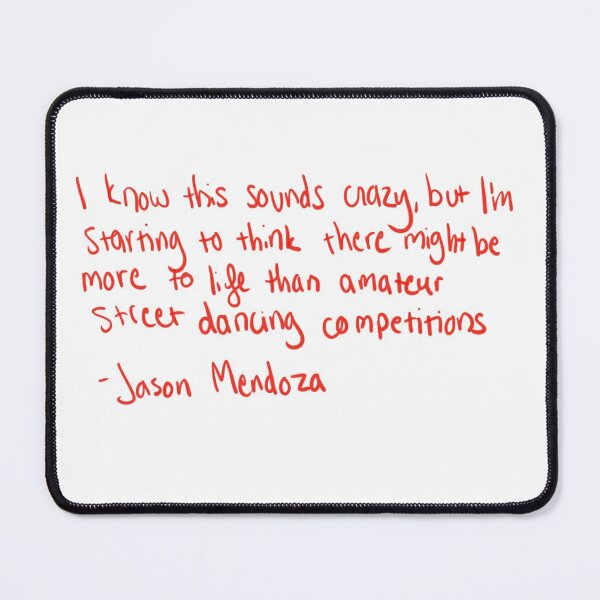 I know this sounds crazy, but I'm
starting to think there might be
more to life than amateur
street dancing competitions
-Jason Mendoza